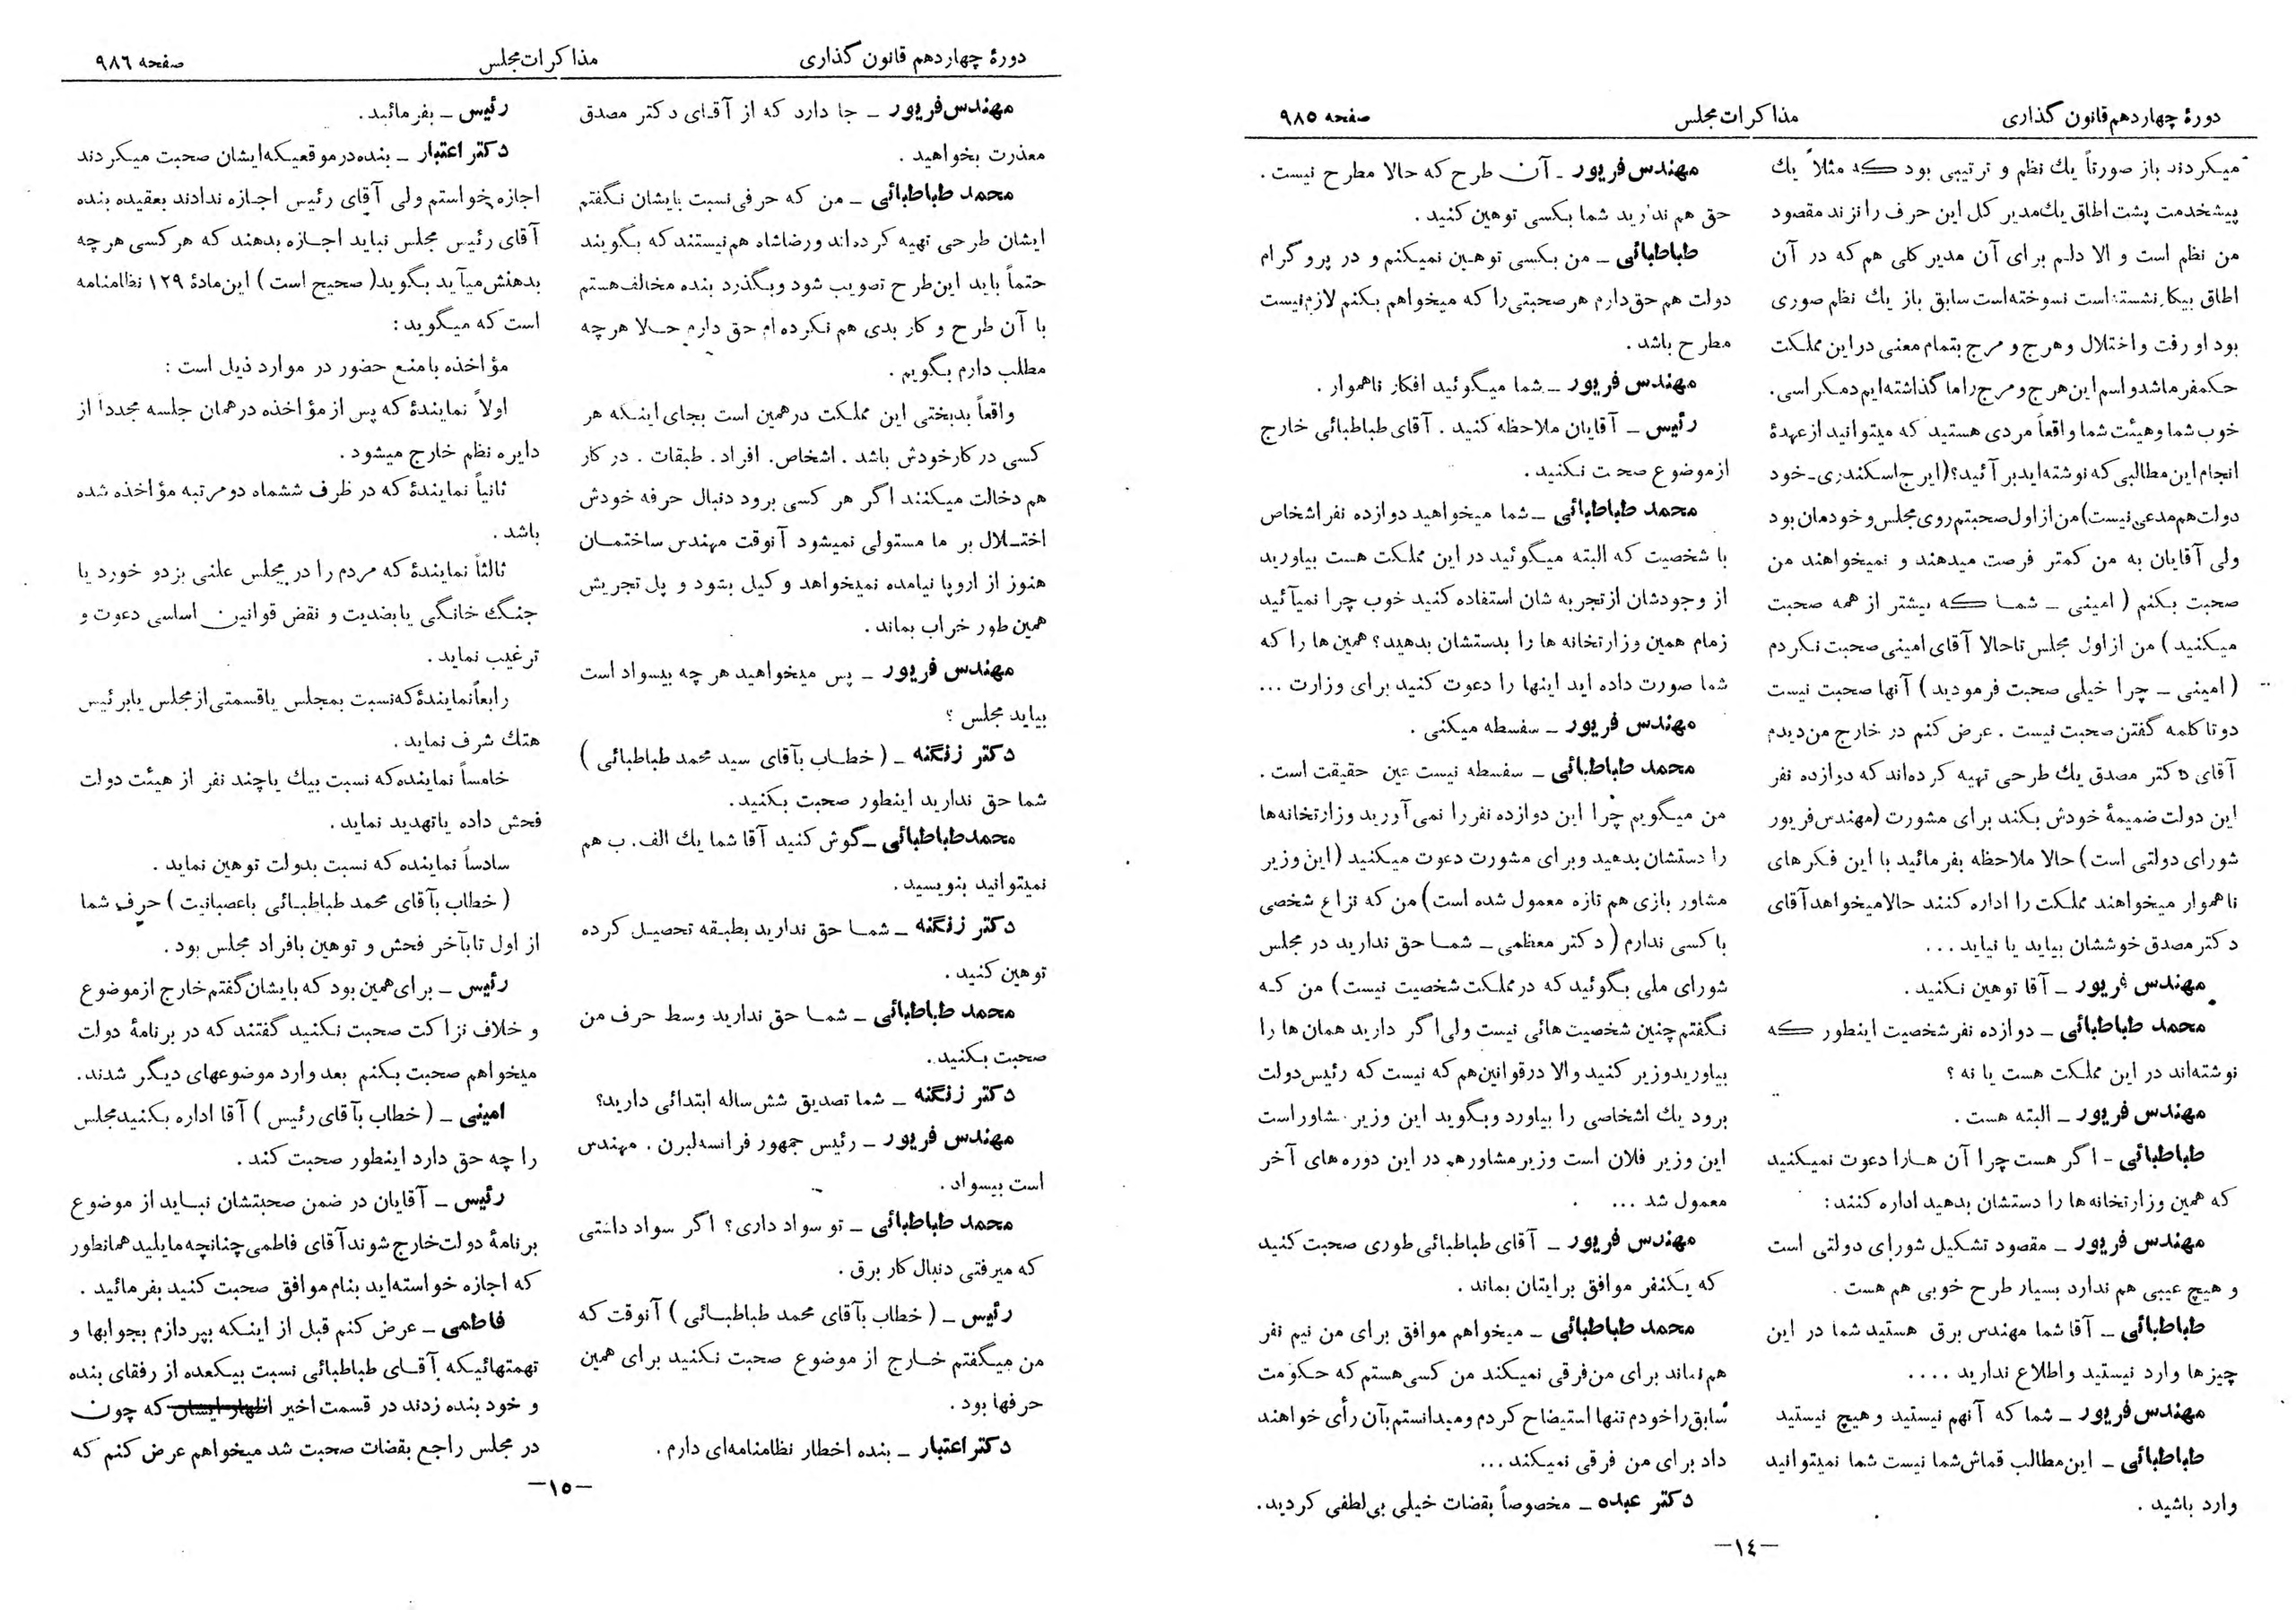 دورهٔ چهاردهم قانون گذاری
مذاکرات مجلس
صفحه ۹۸۵
میکردند باز صورتاً یك نظم و ترتیبی بود که مثلاً یك
پیشخدمت پشت اطاق یك مدیر کل این حرف را نزند مقصود
من نظم است و الا دلم برای آن مدیر کلی هم که در آن
اطاق بیکار نشسته است نسوخته است سابق باز یك نظم صوری
بود او رفت و اختلال و هرج و مرج بتمام معنی در این مملکت
حکمفرما شد و اسم این هرج و مرج را ما گذاشته ایم دمکراسی.
خوب شما و هیئت شما واقعاً مردی هستید که میتوانید از عهدهٔ
انجام این مطالبی که نوشته اید بر آئید؟ (ایرج اسکندری - خود
دولت هم مدعی نیست) من از اول صحبتم روی مجلس و خودمان بود
ولی آقایان به من کمتر فرصت میدهند و نمیخواهند من
صحبت بکنم ( امینی - شما که بیشتر از همه صحبت
میکنید ) من از اول مجلس تا حالا آقای امینی صحبت نکردم
( امینی - چرا خیلی صحبت فرمودید ) آنها صحبت نیست
دو تا کلمه گفتن صحبت نیست . عرض کنم در خارج من دیدم
آقای دکتر مصدق یك طرحی تهیه کرده اند که دوازده نفر
این دولت ضمیمهٔ خودش بکند برای مشورت (مهندس فریور
شورای دولتی است) حالا ملاحظه بفرمائید با این فکرهای
ناهموار میخواهند مملکت را اداره کنند حالا میخواهد آقای
دکتر مصدق خوششان بیاید یا نیاید ...
مهندس فریور - آقا توهین نکنید .
محمد طباطبائی - دوازده نفر شخصیت اینطور که
نوشته اند در این مملکت هست یا نه ؟
مهندس فریور - البته هست .
طباطبائی - اگر هست چرا آن ها را دعوت نمیکنید
که همین وزارتخانه ها را دستشان بدهید اداره کنند :
مهندس فریور - مقصود تشکیل شورای دولتی است
و هیچ عیبی هم ندارد بسیار طرح خوبی هم هست .
طباطبائی - آقا شما مهندس برق هستید شما در این
چیزها وارد نیستید و اطلاع ندارید ....
مهندس فریور - شما که آنهم نیستید و هیچ نیستید
طباطبائی - این مطالب قماش شما نیست شما نمیتوانید
وارد باشید .
مهندس فریور - آن طرح که حالا مطرح نیست .
حق هم ندارید شما بکسی توهین کنید .
طباطبائی - من بکسی توهین نمیکنم و در پروگرام
دولت هم حق دارم هر صحبتی را که میخواهم بکنم لازم نیست
مطرح باشد .
مهندس فریور - شما میگوئید افکار ناهموار .
رئیس - آقایان ملاحظه کنید . آقای طباطبائی خارج
از موضوع صحبت نکنید .
محمد طباطبائی - شما میخواهید دوازده نفر اشخاص
با شخصیت که البته میگوئید در این مملکت هست بیاورید
از وجودشان از تجربه شان استفاده کنید خوب چرا نمیآئید
زمام همین وزارتخانه ها را بدستشان بدهید؟ همین ها را که
شما صورت داده اید اینها را دعوت کنید برای وزارت ...
مهندس فریور - سفسطه میکنی .
محمد طباطبائی - سفسطه نیست عین حقیقت است .
من میگویم چرا این دوازده نفر را نمی آورید وزارتخانه ها
را دستشان بدهید و برای مشورت دعوت میکنید (این وزیر
مشاور بازی هم تازه معمول شده است) من که نزاع شخصی
با کسی ندارم ( دکتر معظمی - شما حق ندارید در مجلس
شورای ملی بگوئید که در مملکت شخصیت نیست) من که
نگفتم چنین شخصیت هائی نیست ولی اگر دارید همان ها را
بیاورید وزیر کنید والا در قوانین هم که نیست که رئیس دولت
برود یك اشخاصی را بیاورد و بگوید این وزیر مشاور است
این وزیر فلان است وزیر مشاور هم در این دوره های آخر
معمول شد ...
مهندس فریور - آقای طباطبائی طوری صحبت کنید
که یکنفر موافق برایتان بماند .
محمد طباطبائی - میخواهم موافق برای من نیم نفر
هم نماند برای من فرقی نمیکند من کسی هستم که حکومت
سابق را خودم تنها استیضاح کردم و میدانستم بآن رأی خواهند
داد برای من فرقی نمیکند ...
دکتر عبده - مخصوصاً بقضات خیلی بی لطفی کردید.
-۱٤-
دورهٔ چهاردهم قانون گذاری
مذاکرات مجلس
صفحه ۹۸۶
مهندس فریور - جا دارد که از آقای دکتر مصدق
معذرت بخواهید .
محمد طباطبائی - من که حرفی نسبت بایشان نگفتم
ایشان طرحی تهیه کرده اند و رضاشاه هم نیستند که بگویند
حتماً باید این طرح تصویب شود و بگذرد بنده مخالف هستم
با آن طرح و کار بدی هم نکرده ام حق دارم حالا هر چه
مطلب دارم بگویم .
واقعاً بدبختی این مملکت در همین است بجای اینکه هر
کسی در کار خودش باشد . اشخاص . افراد . طبقات . در کار
هم دخالت میکنند اگر هر کسی برود دنبال حرفه خودش
اختلال بر ما مستولی نمیشود آنوقت مهندس ساختمان
هنوز از اروپا نیامده نمیخواهد وکیل بشود و پل تجریش
همین طور خراب بماند .
مهندس فریور - پس میخواهید هر چه بیسواد است
بیاید مجلس ؟
دکتر زنگنه - ( خطاب بآقای سید محمد طباطبائی )
شما حق ندارید اینطور صحبت بکنید .
محمد طباطبائی - گوش کنید آقا شما یك الف . ب هم
نمیتوانید بنویسید .
دکتر زنگنه - شما حق ندارید بطبقه تحصیل کرده
توهین کنید .
محمد طباطبائی - شما حق ندارید وسط حرف من
صحبت بکنید .
دکتر زنگنه - شما تصدیق شش ساله ابتدائی دارید؟
مهندس فریور - رئیس جمهور فرانسه لبرن . مهندس
است بیسواد .
محمد طباطبائی - تو سواد داری؟ اگر سواد داشتی
که میرفتی دنبال کار برق .
رئیس - ( خطاب بآقای محمد طباطبائی ) آنوقت که
من میگفتم خارج از موضوع صحبت نکنید برای همین
حرفها بود .
دکتر اعتبار - بنده اخطار نظامنامه ای دارم .
رئیس - بفرمائید .
دکتر اعتبار - بنده در موقعیکه ایشان صحبت میکردند
اجازه خواستم ولی آقای رئیس اجازه ندادند بعقیده بنده
آقای رئیس مجلس نباید اجازه بدهند که هر کسی هر چه
بدهنش میآید بگوید( صحیح است ) این مادهٔ ۱۲۹ نظامنامه
است که میگوید :
مؤاخذه با منع حضور در موارد ذیل است :
اولاً نمایندهٔ که پس از مؤاخذه در همان جلسه مجدداً از
دایره نظم خارج میشود .
ثانیاً نمایندهٔ که در ظرف ششماه دو مرتبه مؤاخذه شده
باشد .
ثالثاً نمایندهٔ که مردم را در مجلس علنی بزدو خورد یا
جنگ خانگی یا بضدیت و نقض قوانین اساسی دعوت و
ترغیب نماید .
رابعاً نمایندهٔ که نسبت بمجلس یا قسمتی از مجلس یا برئیس
هتك شرف نماید .
خامساً نماینده که نسبت بیك یا چند نفر از هیئت دولت
فحش داده یا تهدید نماید .
سادساً نماینده که نسبت بدولت توهین نماید .
( خطاب بآقای محمد طباطبائی با عصبانیت ) حرف شما
از اول تا بآخر فحش و توهین بافراد مجلس بود .
رئیس - برای همین بود که بایشان گفتم خارج از موضوع
و خلاف نزاکت صحبت نکنید گفتند که در برنامهٔ دولت
میخواهم صحبت بکنم بعد وارد موضوعهای دیگر شدند.
امینی - ( خطاب بآقای رئیس ) آقا اداره بکنید مجلس
را چه حق دارد اینطور صحبت کند .
رئیس - آقایان در ضمن صحبتشان نباید از موضوع
برنامهٔ دولت خارج شوند آقای فاطمی چنانچه مایلید همانطور
که اجازه خواسته اید بنام موافق صحبت کنید بفرمائید .
فاطمی - عرض کنم قبل از اینکه بپردازم بجوابها و
تهمتهائیکه آقای طباطبائی نسبت بیکعده از رفقای بنده
و خود بنده زدند در قسمت اخیر اظهار ایشان که چون
در مجلس راجع بقضات صحبت شد میخواهم عرض کنم که
-۱۵-